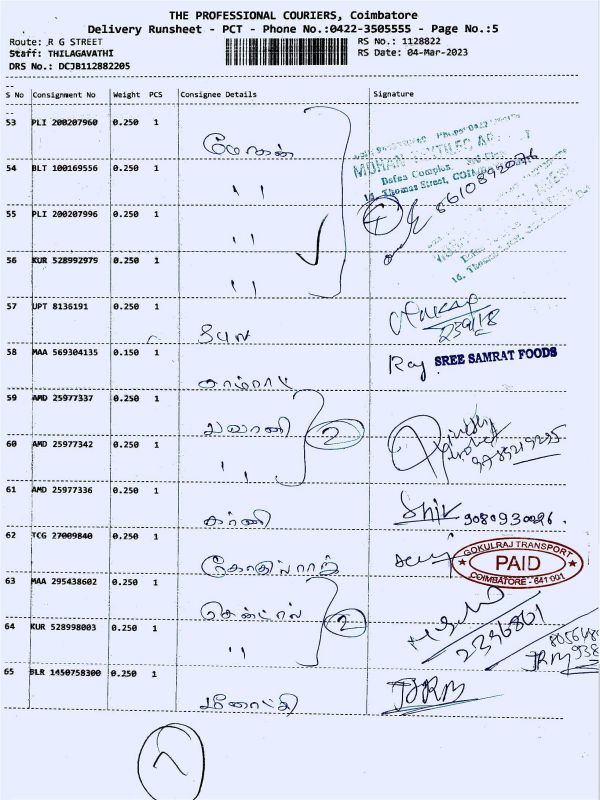 THE PROFESSIONAL COURIERS, Coimbatore
Delivery Runsheet - PCT - Phone No.:0422-3505555 - Page No.:5
Route: R G STREET RS No.: 1128822
Staff: THILAGAVATHI RS Date: 04-Mar-2023
DRS No.: DCJB112882205
S No Consignment No Weight PCS Consignee Details Signature
53 PLI 200207960 0.250 1 மோகன்
54 BLT 100169556 0.250 1 " 
MOHAN
Dafaa Complex
14, Thomas Street, COIM
8610892096
55 PLI 200207996 0.250 1 " 4
56 KUR 528992979 0.250 1 "
16, Thomas
57 UPT 8136191 0.250 1
239418
58 MAA 569304135 0.150 1 சாம்ராட் Raj SREE SAMRAT FOODS
59 AMD 25977337 0.250 1 பவானி 2
60 AMD 25977342 0.250 1 "
61 AMD 25977336 0.250 1 கர்ணி Shiv 9080930096.
62 TCG 27009840 0.250 1 கோகுல்ராஜ்
GOKULRAJ TRANSPORT
PAID
COIMBATORE - 641 001
63 MAA 295438602 0.250 1 சென்ட்ரல் 2
2396861
64 KUR 528998003 0.250 1 "
JRM
65 BLR 1450758300 0.250 1 மீனாட்சி JRM
7